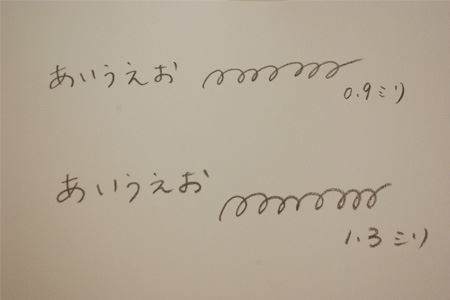 あいうえお
0.9ミリ
あいうえお
1.3ミリ